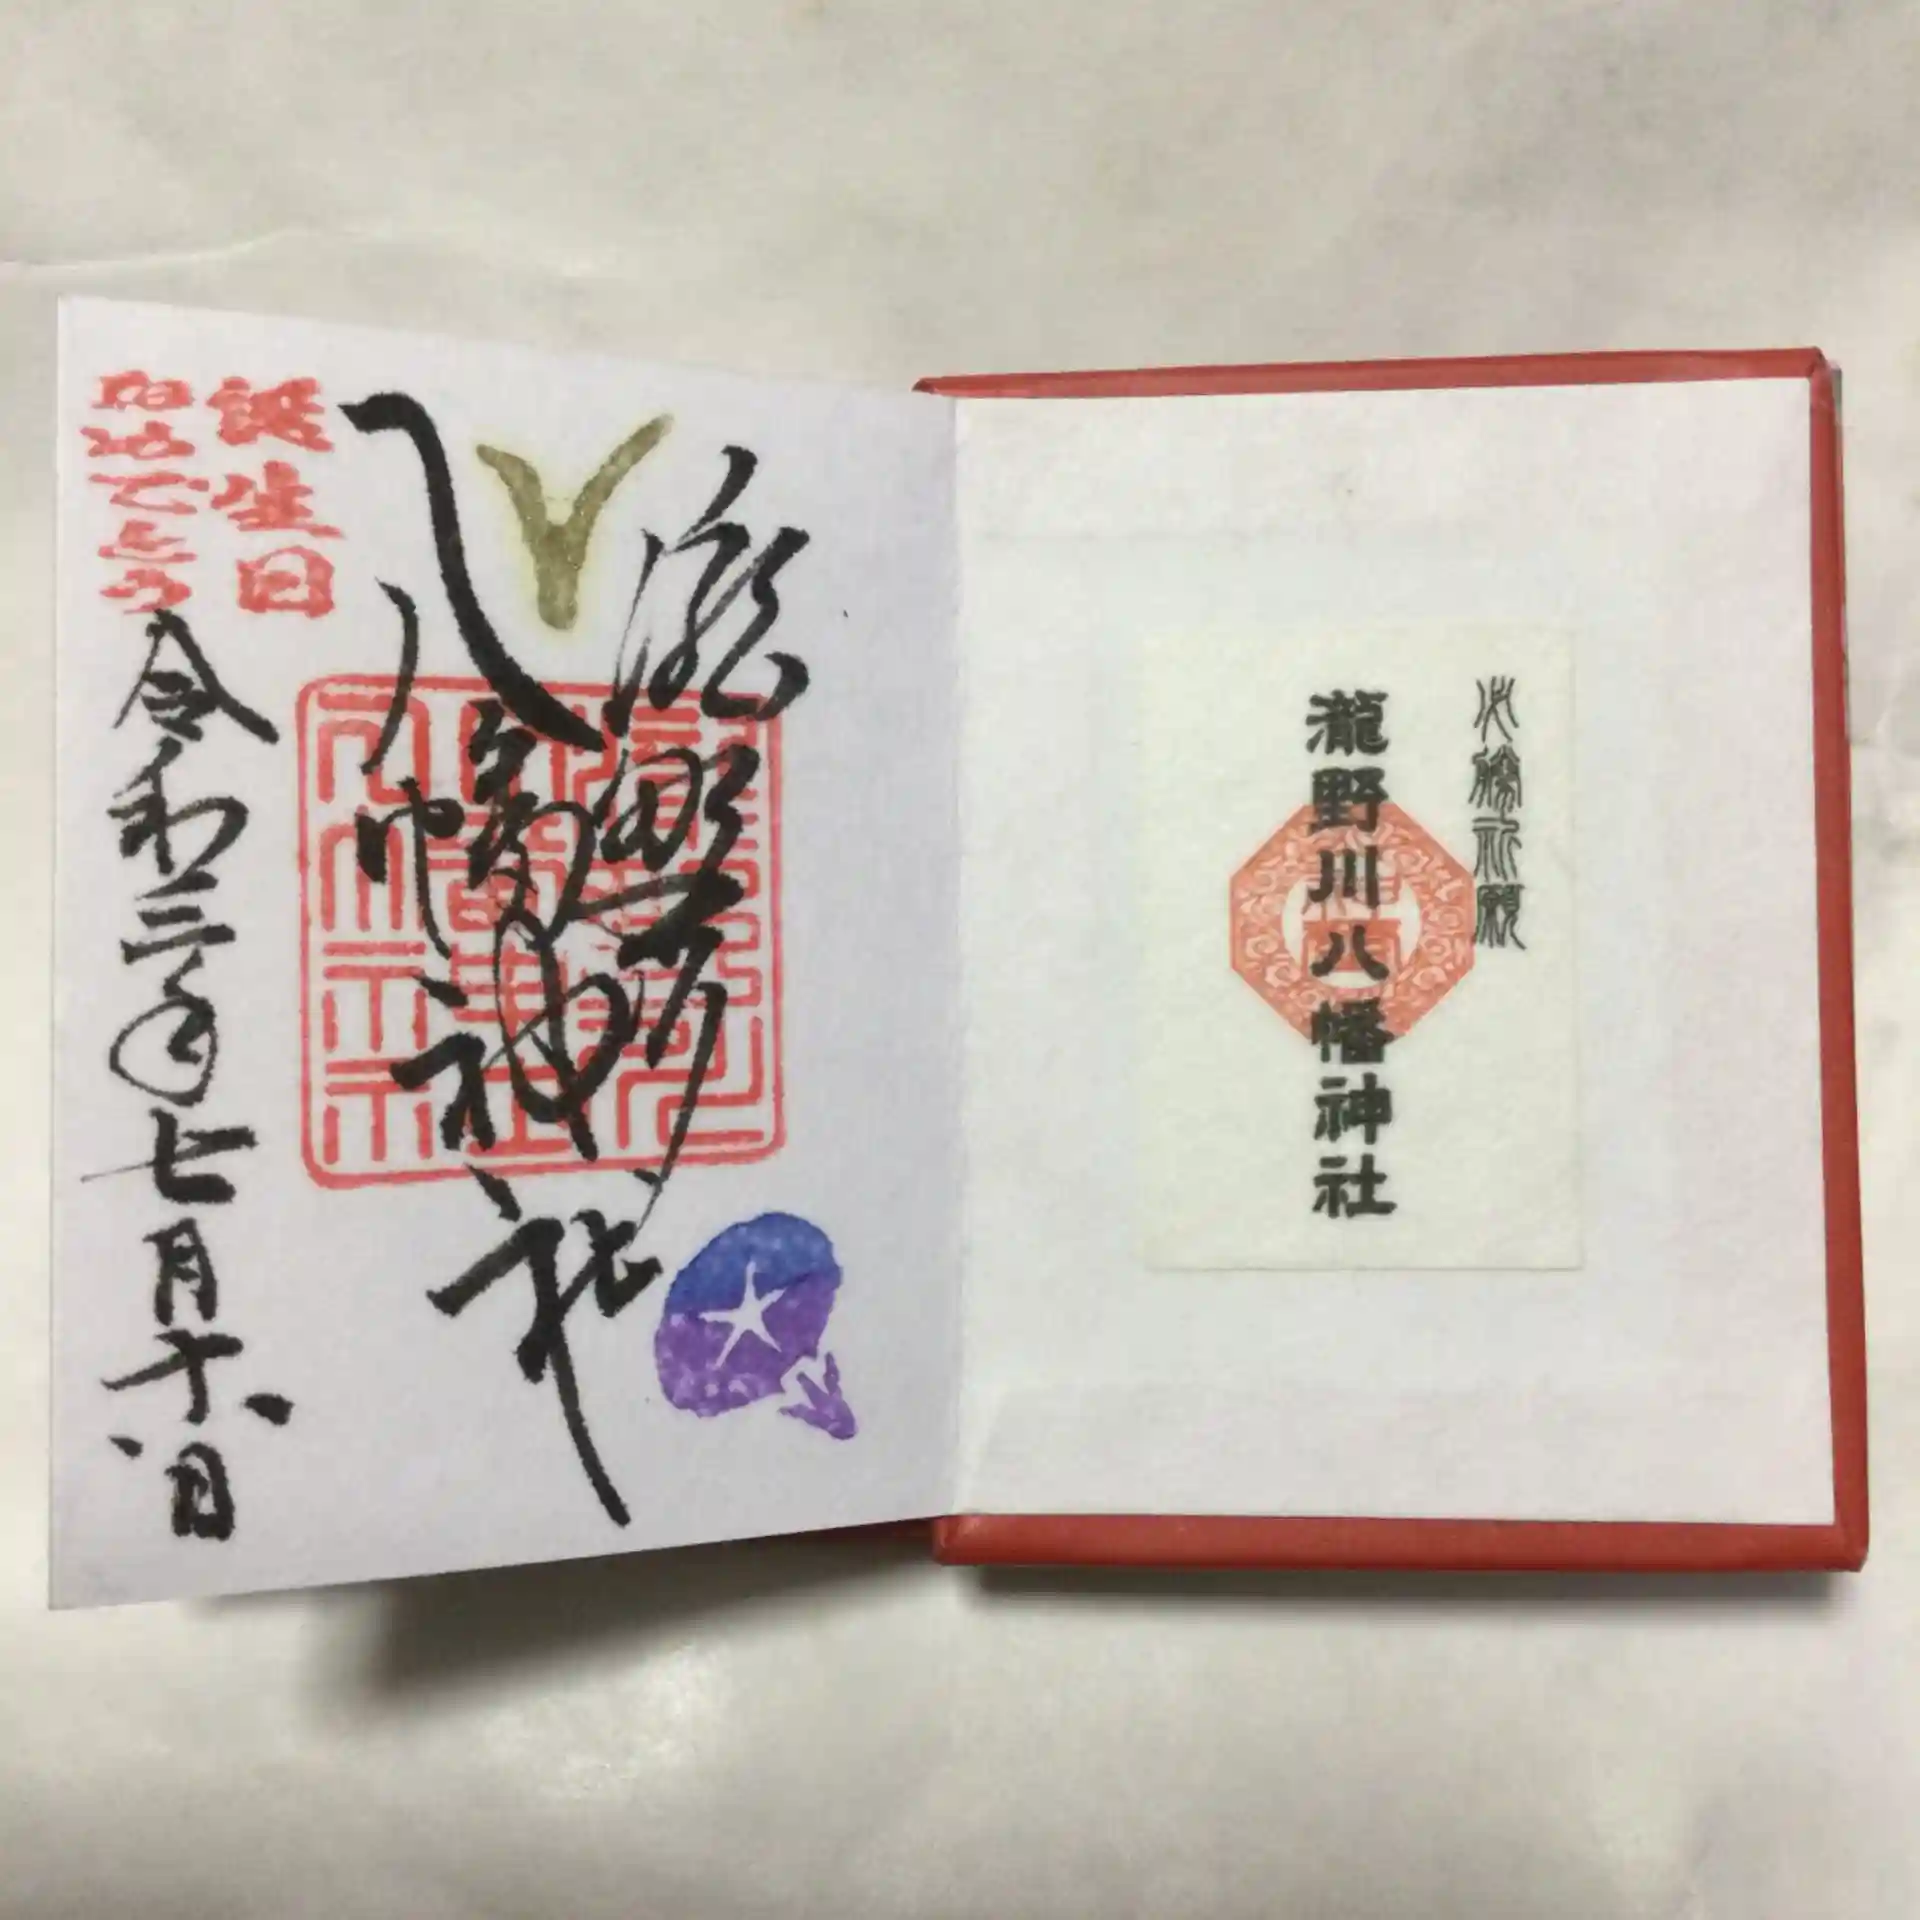 必勝祈願
瀧野川八幡神社
瀧野川
八幡神社
誕生日
おめでとう
令和三年七月十八日